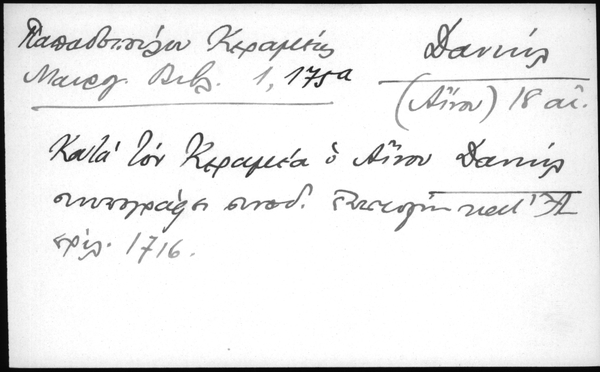 Παπαδοπούλου Κεραμέως
Μαυρογ. Βιβλ. 1, 175α
Δανιήλ
(Αἴνου) 18 αἰ.
Κατά τόν Κεραμέα ὁ Αἴνου Δανιήλ
συνυπογράφει συνοδ. κατ' Ἀ
πρίλ. 1716.